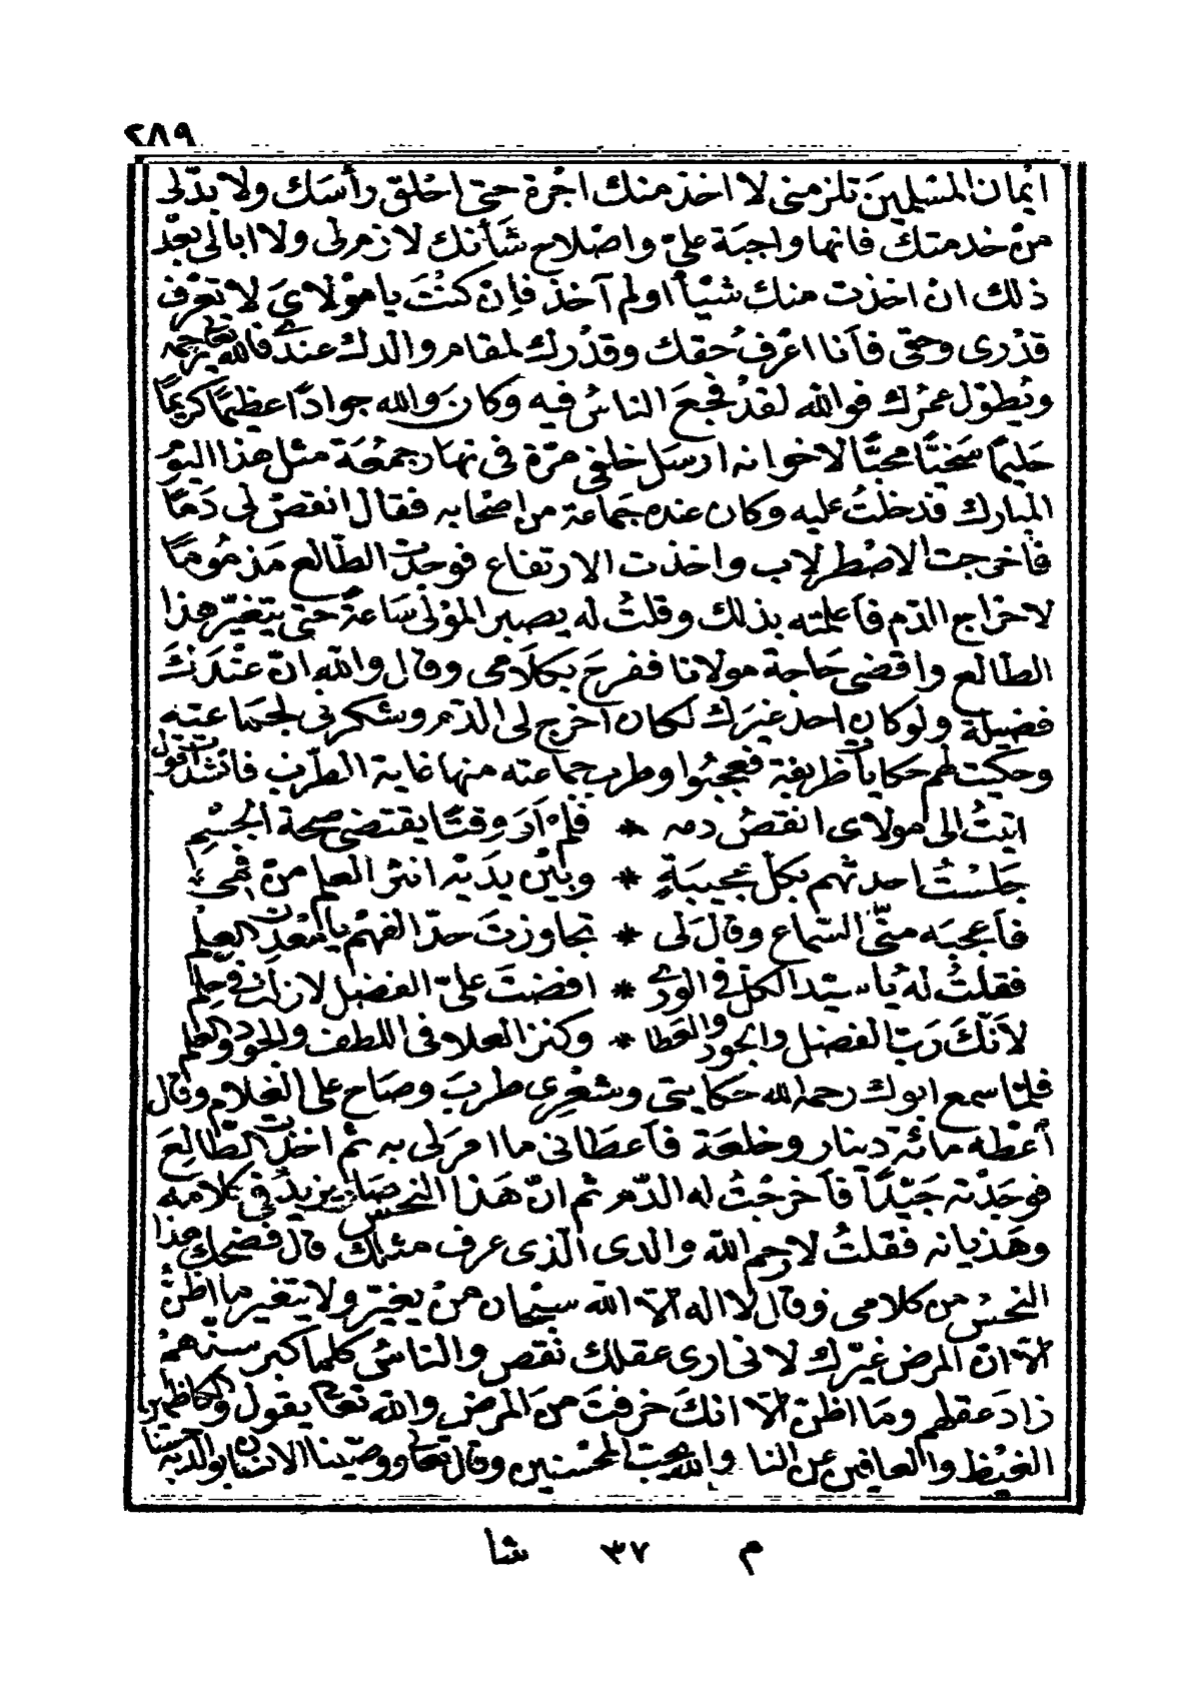 ٢٨٩
ايمان المسلمين تلزمنى لا اخذ منك اجرة حتى احلق رأسك ولا بدّ لى
من خدمتك فانها واجبة علىّ واصلاح شأنك لازم لى ولا ابالى بعد
ذلك ان اخذت منك شيأ اولم آخذ فإن كنت يا مولاى لا تعرف
قدرى وحقى فأنا اعرف حقك وقدرك لمقام والدك عندى فالله تعالى يرحمه
ويطوّل عمرك فوالله لقد فجع الناس فيه وكان والله جوادًا عظيمًا كريمًا
حليمًا سخيًّا محبًّا لاخوانه ارسل خلفى مرّة فى نهار جمعة مثل هذا اليوم
المبارك فدخلتُ عليه وكان عنده جماعة من اصحابه فقال انقص لى دمًا
فأخرجت الاصطرلاب واخذت الارتفاع فوجدت الطالع مذمومًا
لاخراج الدّم فأعلمته بذلك وقلتُ له يصبر المولى ساعة حتى يتغيّر هذا
الطالع واقضى حاجة مولانا ففرح بكلامى وقال والله انّ عندك
فضيلة ولو كان احد غيرك لكان اخرج لى الدّم وشكرنى لجماعته
وحكيت لهم حكايات ظريفة فعجبوا وطرب جماعته منها غاية الطرب فانشدت اقول
اتيتُ الى مولاى انقصُ دمه * فلم أر وقتًا يقتضى صحة الجسم
جلستُ احدثهم بكلّ عجيبةٍ * وبين يديه انثر العلم من فهمى
فأعجبه منّى السّماع وقال لى * تجاوزت حدّ الفهم يا معدن العلم
فقلتُ له يا سيّد الكلّ فى الورى * افضت علىّ الفضل لا زلت فى حلم
لأنّك ربّ الفضل والجود والعطا * وكنز العلا فى اللطف والجود والعلم
فلمّا سمع ابوك رحمه الله حكايتى وشعرى طرب وصاح على الغلام وقال
أعطه مائة دينار وخلعة فأعطانى ما امر لى به ثم اخذت الطالع
فوجدته جيّدًا فأخرجتُ له الدّم ثم انّ هذا النحس صار يزيدُ فى كلامه
وهذيانه فقلتُ لا رحم الله والدى الّذى عرف مثلك قال فضحك هذا
النحسُ من كلامى وقال لا اله الّا الله سبحان من يغيّر ولا يتغير ما اظنّ
الّا ان المرض غيّرك لانى ارى عقلك نقص والناسُ كلما كبر سنّهم
زاد عقلهم وما اظنّ الّا انك خرفت من المرض والله تعالى يقول والكاظمين
الغيظ والعافين عن النا والله يحبّ المحسنين وقال تعالى ووصّينا الانسان بوالديه حسنا
م ٣٧ شا